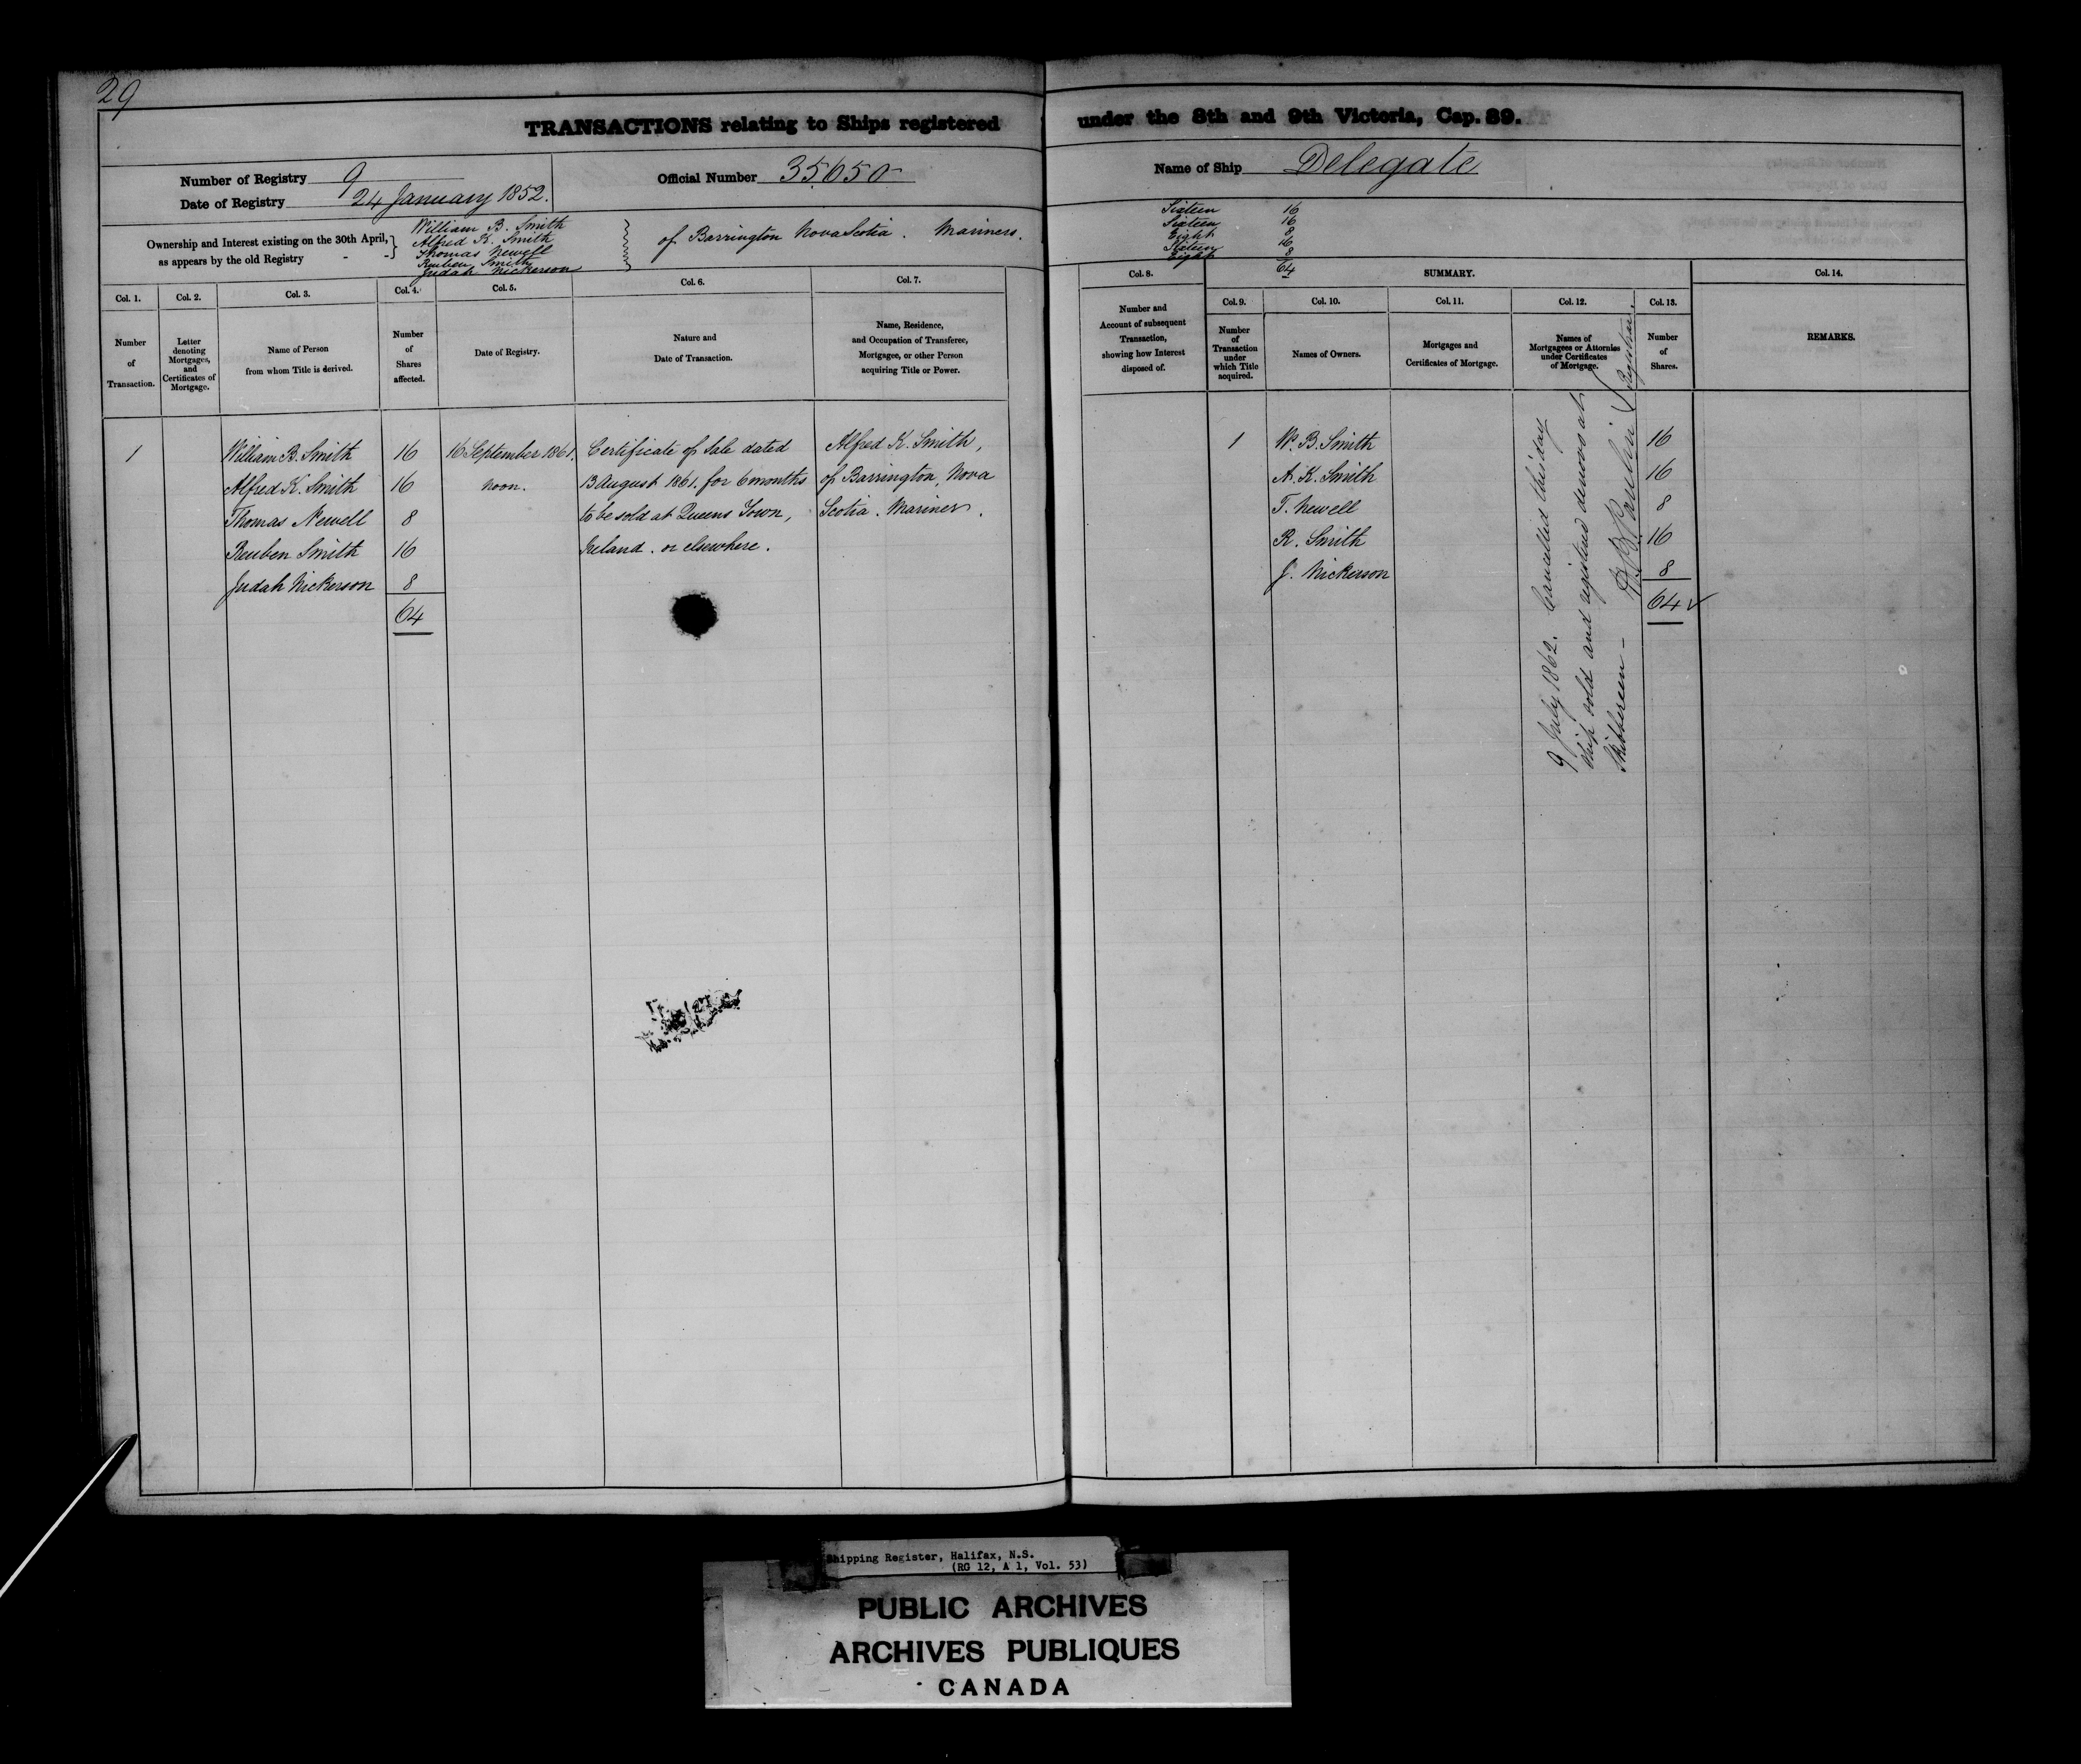 29
TRANSACTIONS relating to Ships registered under the 8th and 9th Victoria, Cap. 89.
Number of Registry 9
Date of Registry 24 January 1852.
Official Number 35650
Name of Ship Delegate
Ownership and Interest existing on the 30th April, as appears by the old Registry - -}
William B. Smith
Alfred K. Smith
Thomas Newell
Reuben Smith
Judah Nickerson
of Barrington Nova Scotia. Mariners.
Sixteen 16
Sixteen 16
Eight 8
Sixteen 16
Eight 8
64
Col. 1.
Number
of
Transaction.
Col. 2.
Letter
denoting
Mortgages,
and
Certificates of
Mortgage.
Col. 3.
Name of Person
from whom Title is derived.
Col. 4.
Number
of
Shares
affected.
Col. 5.
Date of Registry.
Col. 6.
Nature and
Date of Transaction.
Col. 7.
Name, Residence,
and Occupation of Transferee,
Mortgagee, or other Person
acquiring Title or Power.
Col. 8.
Number and
Account of subsequent
Transaction,
showing how Interest
disposed of.
SUMMARY.
Col. 9.
Number
of
Transaction
under
which Title
acquired.
Col. 10.
Names of Owners.
Col. 11.
Mortgages and
Certificates of Mortgage.
Col. 12.
Names of
Mortgagees or Attornies
under Certificates
of Mortgage.
Col. 13.
Number
of
Shares.
Col. 14.
REMARKS.
1 William B. Smith 16 16 September 1861. Certificate of Sale dated Alfred K. Smith,
Alfred K. Smith 16 noon. 13 August 1861. for 6 months of Barrington, Nova
Thomas Newell 8 to be sold at Queens Town, Scotia. Mariner.
Reuben Smith 16 Ireland. or elsewhere.
Judah Nickerson 8
64
1 W. B. Smith 16
A. K. Smith 16
T. Newell 8
R. Smith 16
J. Nickerson 8
64 ✓
9 July 1862. Cancelled this day
Ship sold and registered denovo at
Skibbereen -
Registrar.
Shipping Register, Halifax, N.S.
(RG 12, A 1, Vol. 53)
PUBLIC ARCHIVES
ARCHIVES PUBLIQUES
CANADA